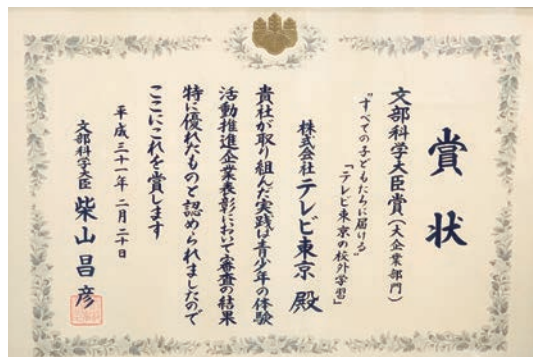 賞状
文部科学大臣賞(大企業部門)
"すべての子どもたちに届ける"
「テレビ東京の校外学習」
株式会社テレビ東京 殿
貴社が取り組んだ実践は青少年の体験
活動推進企業表彰において審査の結果
特に優れたものと認められましたので
ここにこれを賞します
平成三十一年二月二十日
文部科学大臣 柴山昌彦